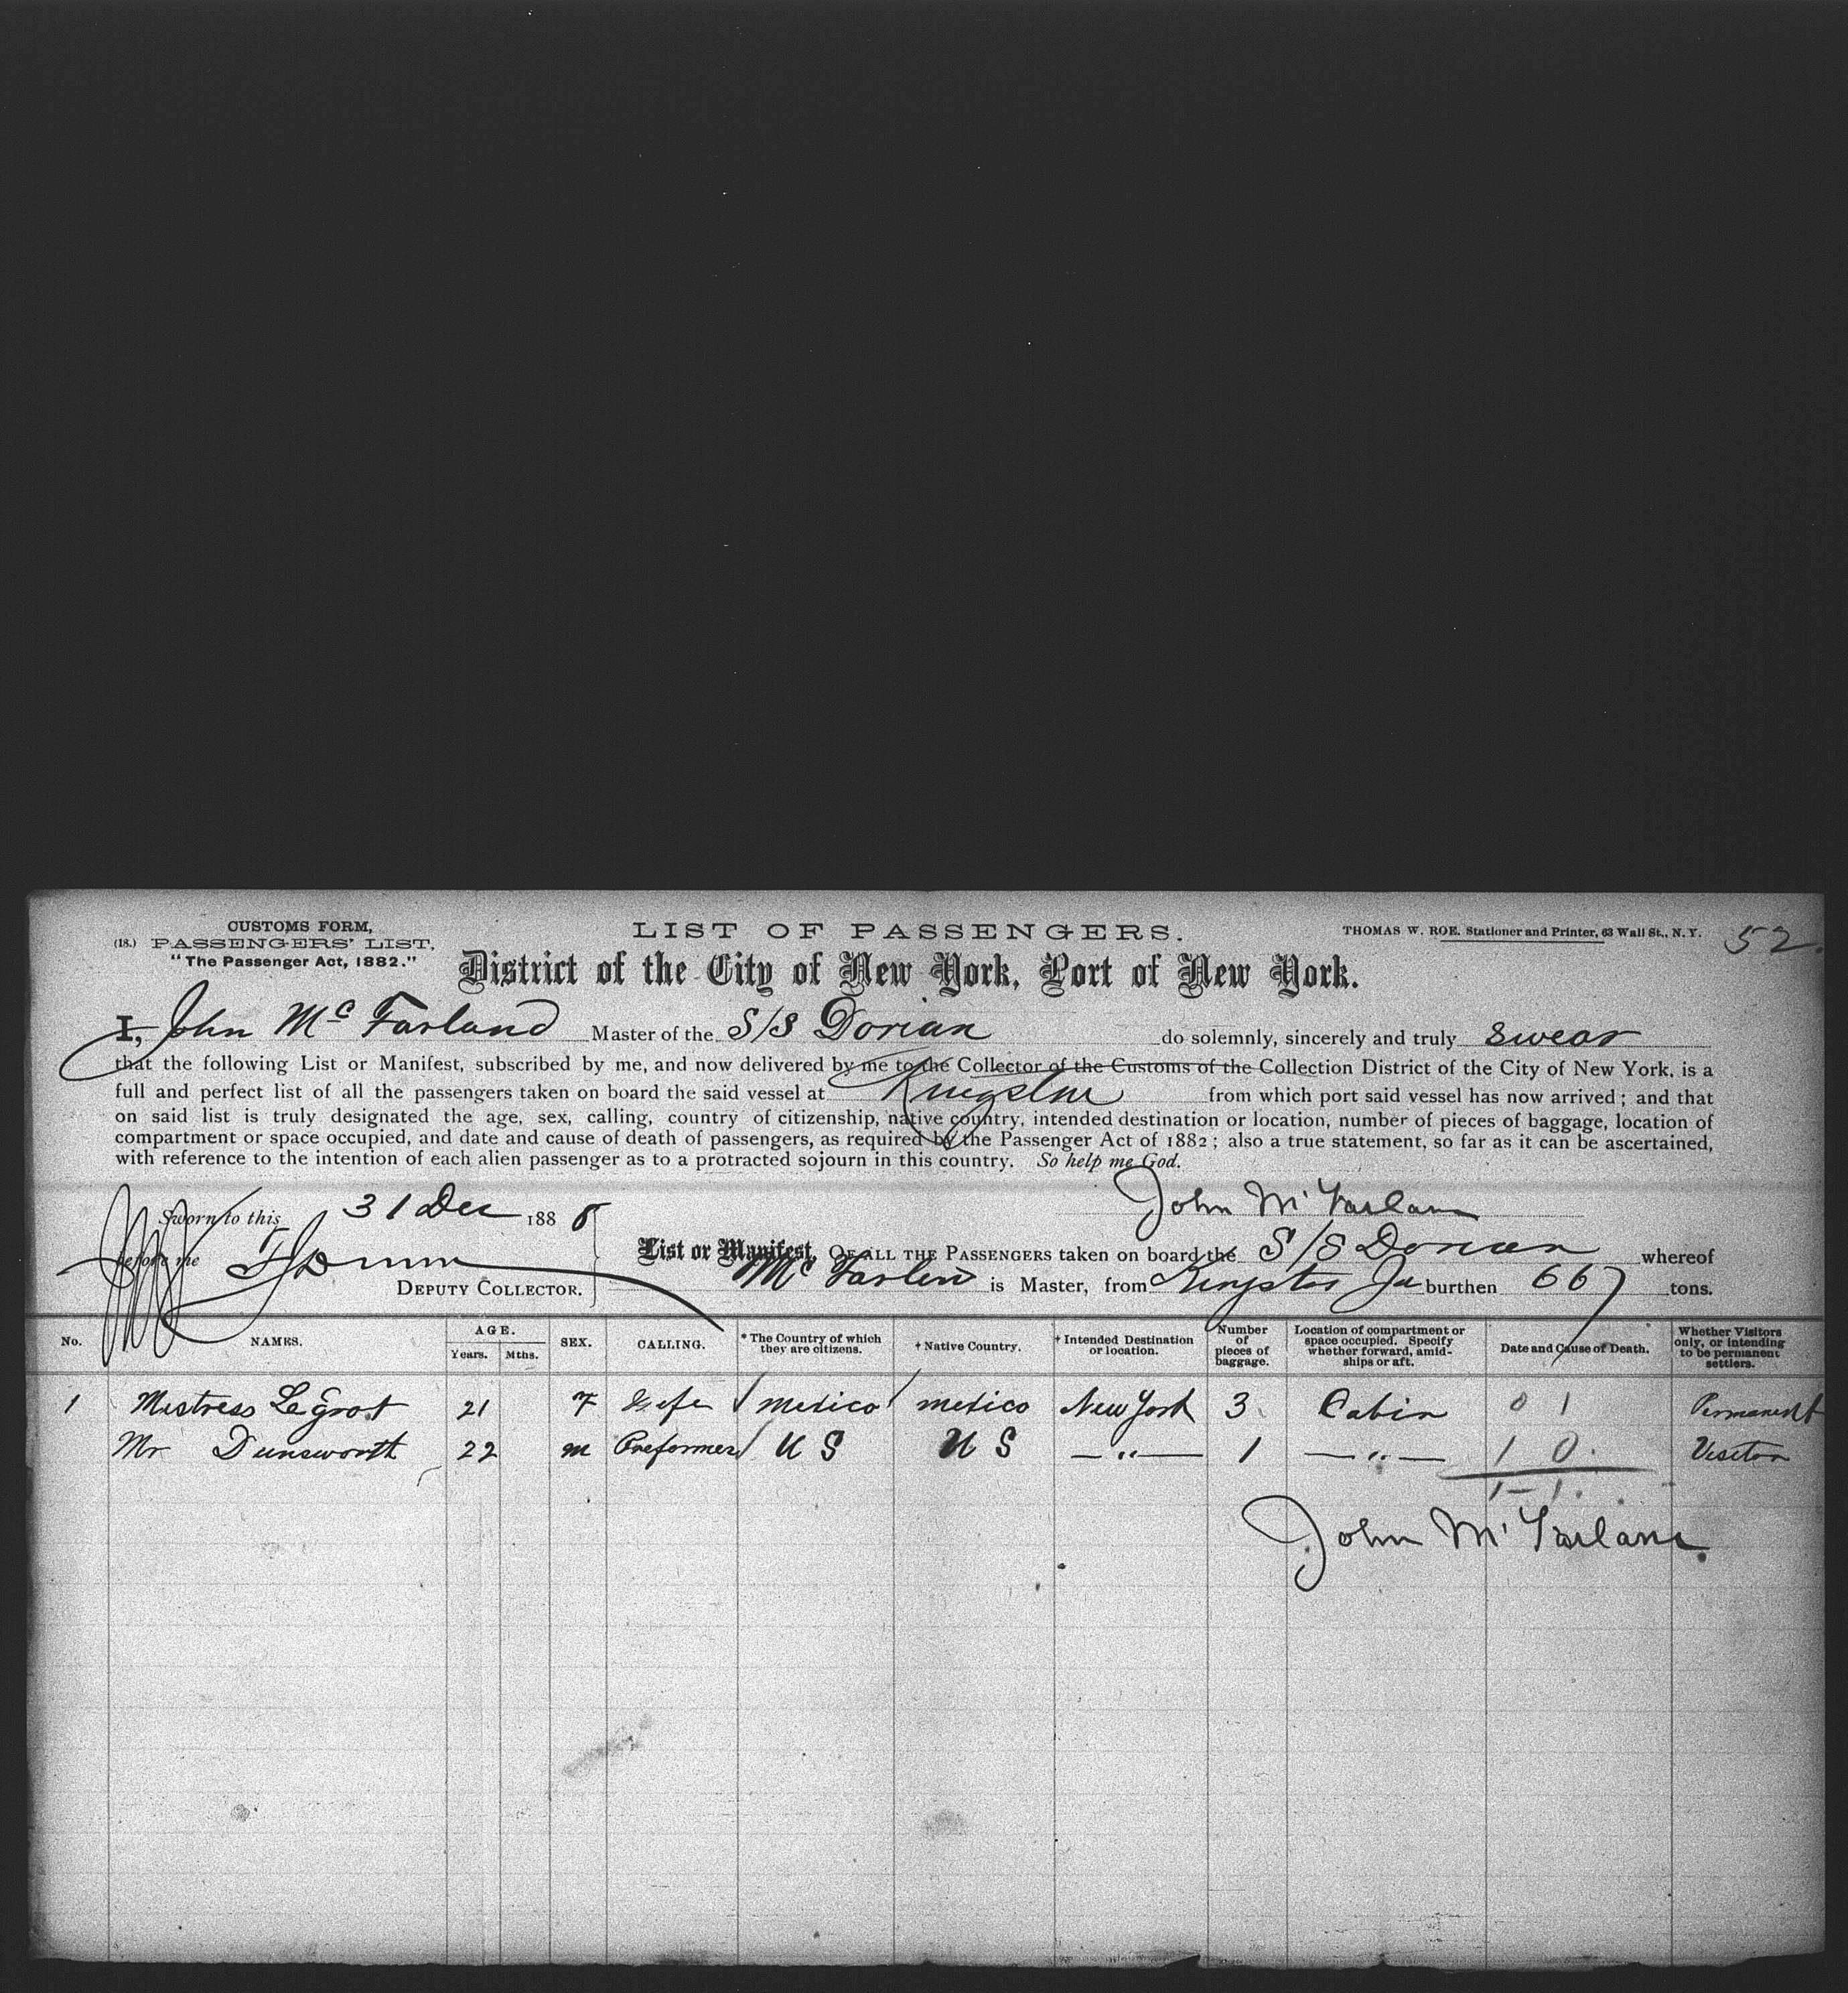 CUSTOMS FORM,
(18.) PASSENGERS' LIST,
"The Passenger Act, 1882."
LIST OF PASSENGERS.
THOMAS W. ROE. Stationer and Printer, 63 Wall St., N. Y.
52
District of the City of New York, Port of New York.
I, John Mc Farland Master of the S/S Dorian do solemnly, sincerely and truly swear
that the following List or Manifest, subscribed by me, and now delivered by me to the Collector of the Customs of the Collection District of the City of New York, is a
full and perfect list of all the passengers taken on board the said vessel at Kingston from which port said vessel has now arrived; and that
on said list is truly designated the age, sex, calling, country of citizenship, native country, intended destination or location, number of pieces of baggage, location of
compartment or space occupied, and date and cause of death of passengers, as required by the Passenger Act of 1882; also a true statement, so far as it can be ascertained,
with reference to the intention of each alien passenger as to a protracted sojourn in this country. So help me God.
John McFarlane
Sworn to this 31 Dec 1888
before me
DEPUTY COLLECTOR.
List or Manifest, OF ALL THE PASSENGERS taken on board the S/S Dorian whereof
Mc Farlen is Master, from Kingston Ja burthen 667 tons.
No. NAMES. AGE. Years. Mths. SEX. CALLING. * The Country of which they are citizens. † Native Country. † Intended Destination or location. Number of pieces of baggage. Location of compartment or space occupied. Specify whether forward, amidships or aft. Date and Cause of Death. Whether Visitors only, or intending to be permanent settlers.
1 Mistress Le Grot 21 F Mexico Mexico New York 3 Cabin 0 1 Permanent
Mr Dunsworth 22 m Preformer U S U S — " — 1 — " — 1 0 Visitor
1 - 1
John McFarlane